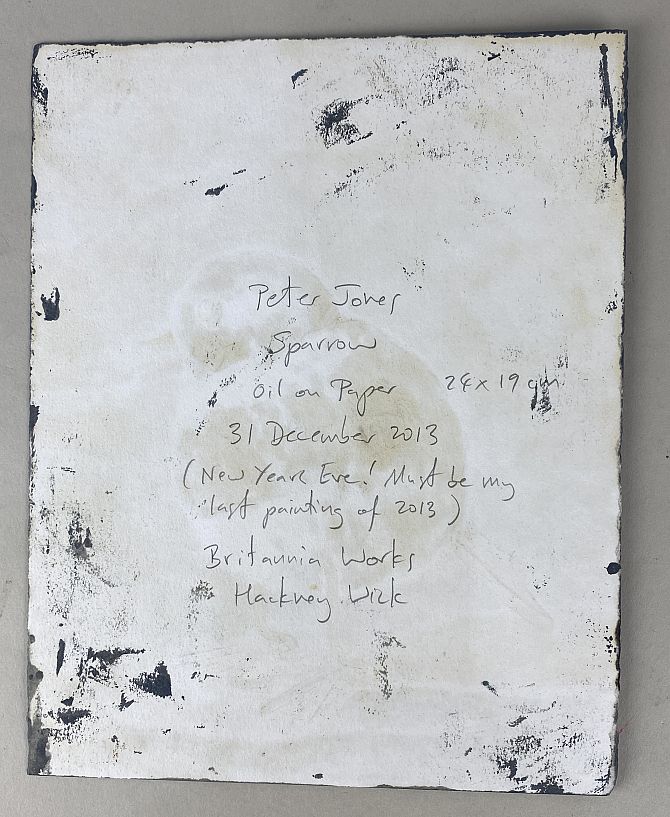 Peter Jones
Sparrow
Oil on Paper 24 x 19 cm
31 December 2013
(New Years Eve! Must be my
last painting of 2013)
Britannia Works
Hackney Wick